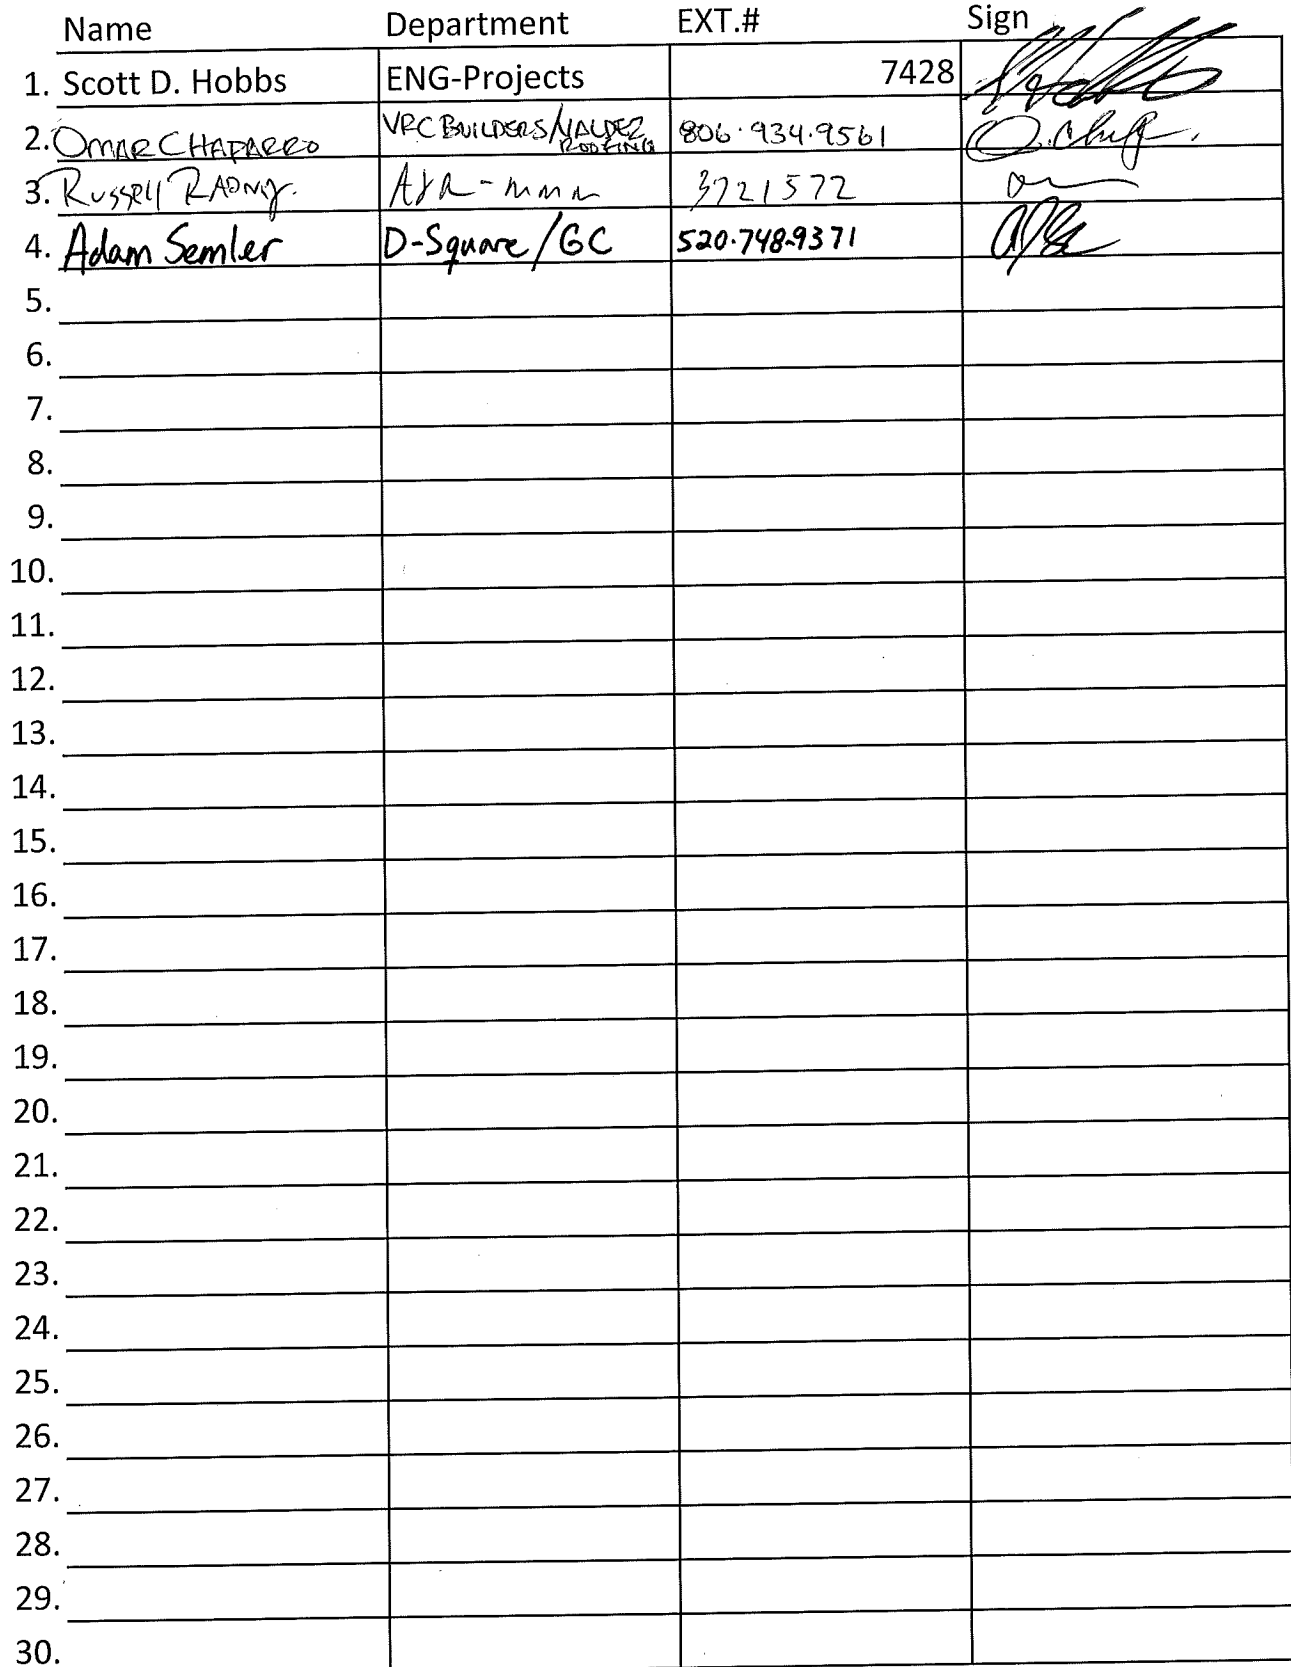 Name Department EXT.# Sign
1. Scott D. Hobbs ENG-Projects 7428
2. OMAR CHAPARRO VRC BUILDERS/VALDEZ ROOFING 806·934·9561
3. Russell 3721572
4. Adam Semler D-Square/GC 520·748·9371
5.
6.
7.
8.
9.
10.
11.
12.
13.
14.
15.
16.
17.
18.
19.
20.
21.
22.
23.
24.
25.
26.
27.
28.
29.
30.